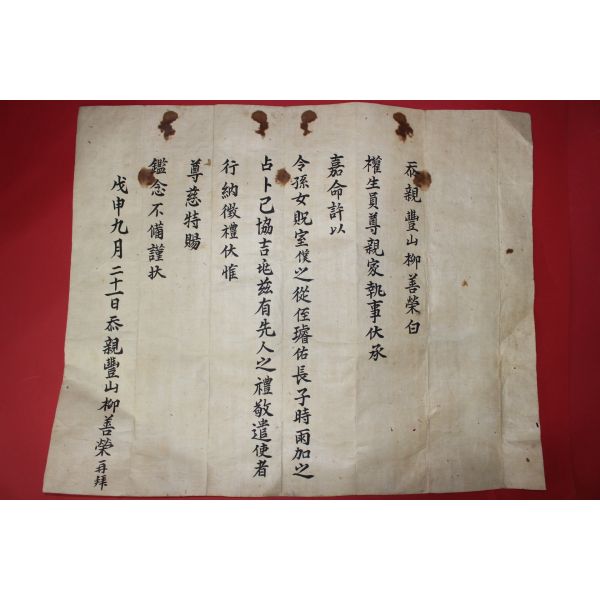 忝親豐山柳善榮白
權生員尊親家執事伏承
嘉命許以
令孫女貺室僕之從侄璿佑長子時雨加之
占卜己協吉兆玆有先人之禮敬遣使者
行納徵禮伏惟
尊慈特賜
鑑念不備謹狀
戊申九月二十一日忝親豐山柳善榮再拜